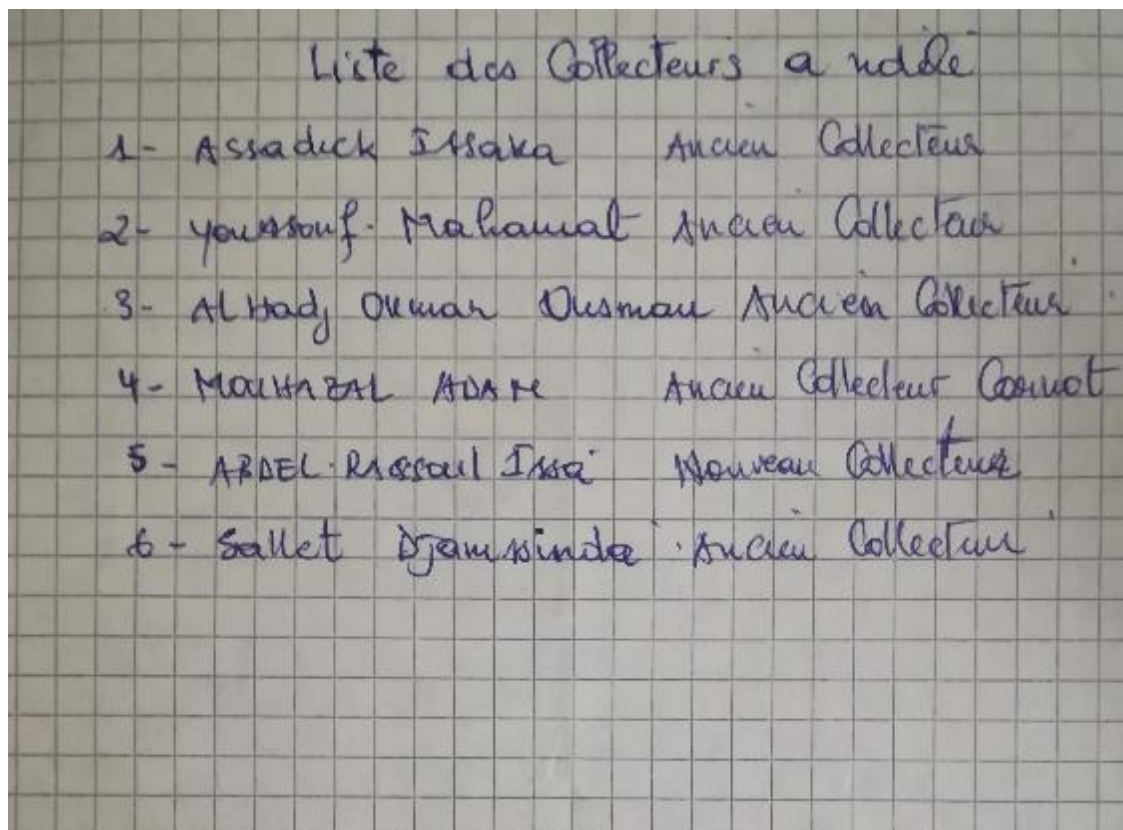 Liste des Collecteurs a ndélé
1- Assadick Issaka Ancien Collecteur
2- Youssouf. Mahamat Ancien Collecteur
3- Al Hadj Oumar Ousman Ancien Collecteur
4- ADAM Ancien Collecteur Carnot
5- ABDEL. Rassoul Issa Nouveau Collecteur
6- Sallet Djamssinda Ancien Collecteur